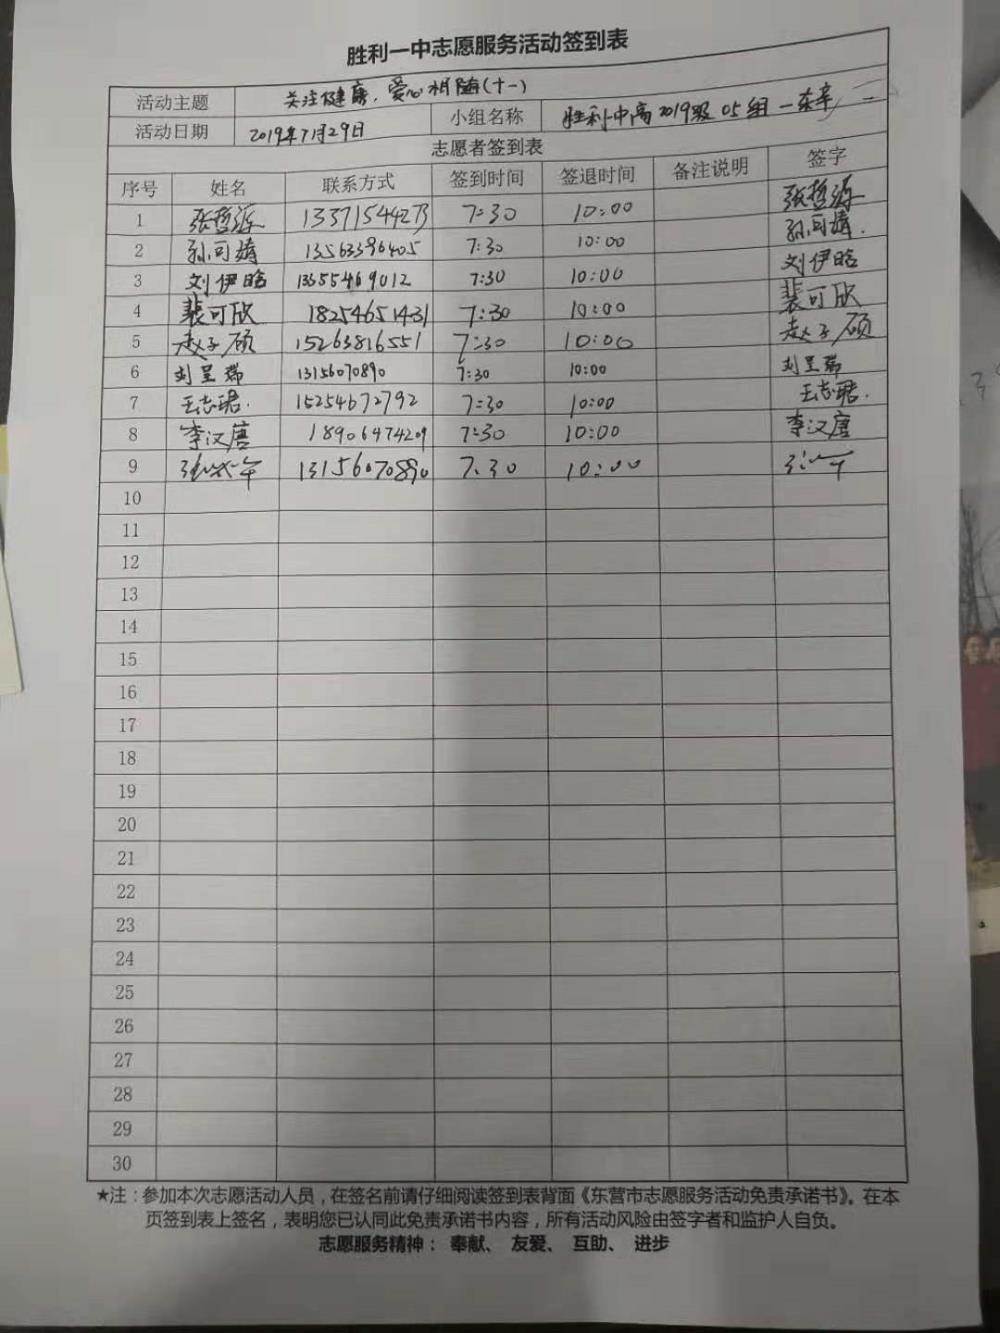 胜利一中志愿服务活动签到表
活动主题 关注健康，爱心相随(十一)
活动日期 2019年7月29日 小组名称 胜利中高2019级05组—东辛二
志愿者签到表
序号 姓名 联系方式 签到时间 签退时间 备注说明 签字
1 张哲源 13371544273 7:30 10:00 张哲源
2 孙可婧 13563396405 7:30 10:00 孙可婧.
3 刘伊晗 13355469012 7:30 10:00 刘伊晗
4 裴可欣 18254651431 7:30 10:00 裴可欣
5 赵子硕 15263816551 7:30 10:00 赵子硕
6 刘呈瑞 13156070890 7:30 10:00 刘呈瑞
7 王志珺. 15254672792 7:30 10:00 王志珺.
8 李汉唐 18906474209 7:30 10:00 李汉唐
9 13156070890 7:30 10:00
10
11
12
13
14
15
16
17
18
19
20
21
22
23
24
25
26
27
28
29
30
★注：参加本次志愿活动人员，在签名前请仔细阅读签到表背面《东营市志愿服务活动免责承诺书》。在本
页签到表上签名，表明您已认同此免责承诺书内容，所有活动风险由签字者和监护人自负。
志愿服务精神： 奉献、 友爱、 互助、 进步